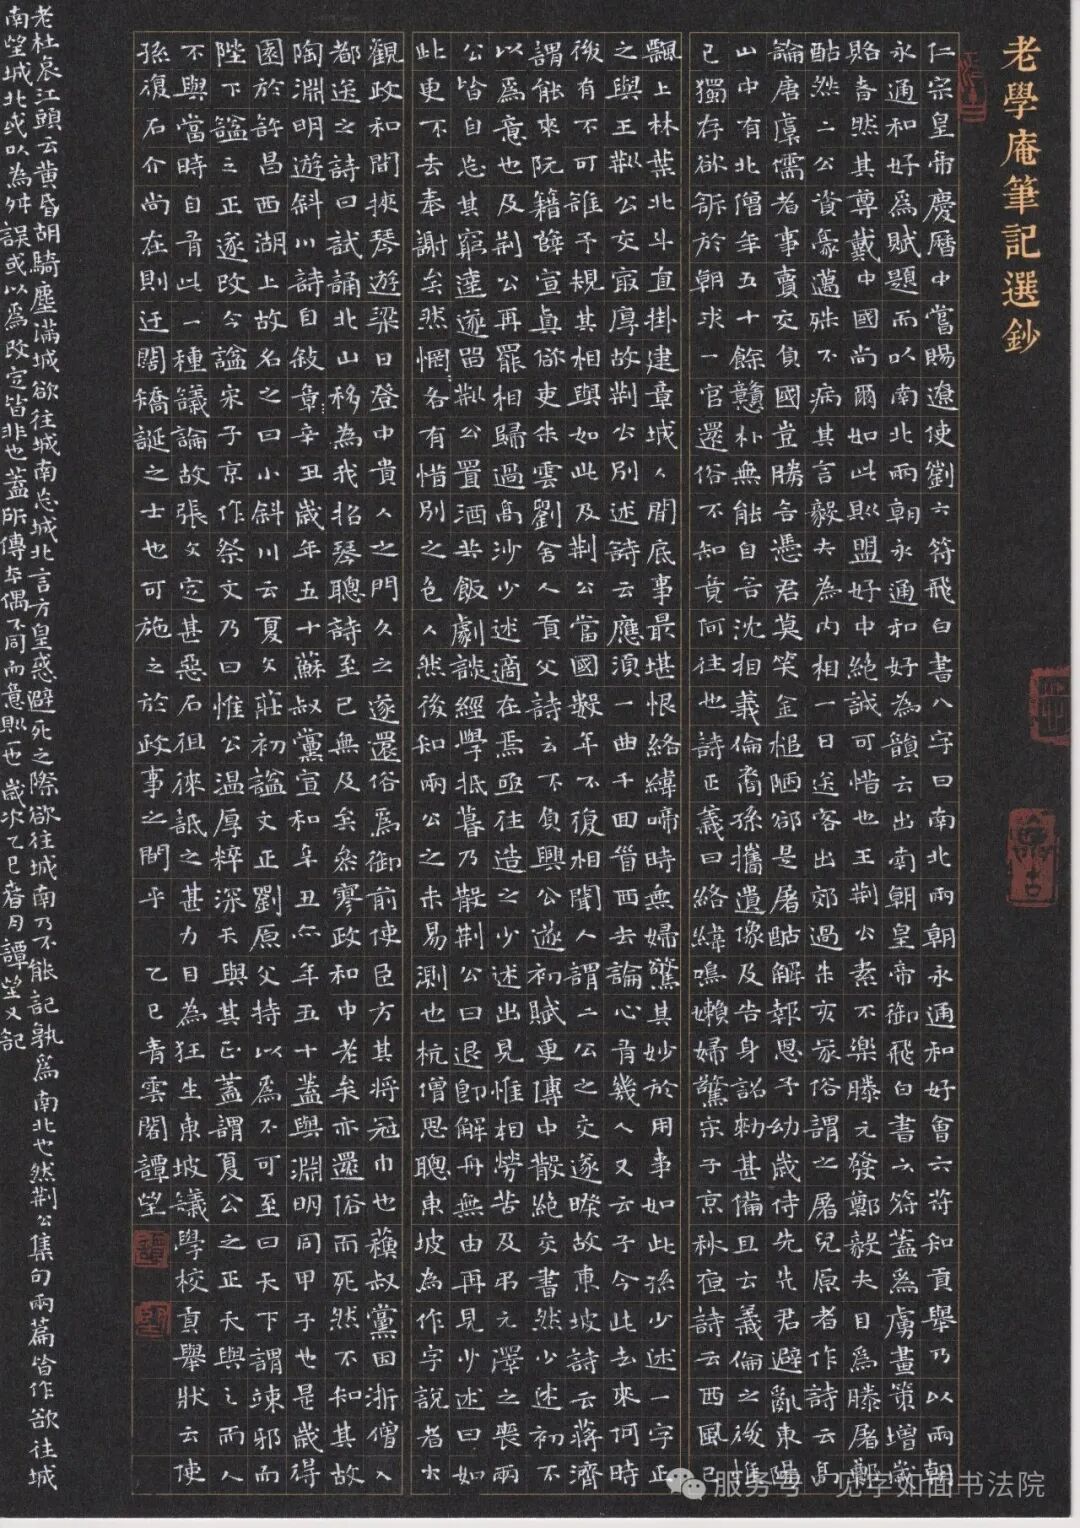 老學庵筆記選鈔
仁宗皇帝慶曆中嘗賜遼使劉六符飛白書八字曰南北兩朝永通和好會六符知貢舉乃以兩朝
永通和好爲賦題而以南北兩朝永通和好為韻云出南朝皇帝御飛白書六符蓋爲虜畫策增歲
賂者然其尊戴中國尚爾如此則盟好中絕誠可惜也王荊公素不樂滕元發鄭毅夫目爲滕屠鄭
酤然二公資豪邁殊不病其言毅夫為內相一日送客出郊過朱亥冢俗謂之屠兒原者作詩云高
論唐虞儒者事賣交負國豈勝言憑君莫笑金槌陋卻是屠酤解報恩予幼歲侍先先君避亂東陽
山中有北僧年五十餘戇朴無能自言沈相義倫裔孫攜遺像及告身詔勑甚備且云義倫之後惟
已獨存欲訴於朝求一官還俗不知竟何往也詩正義曰絡緯鳴嬾婦驚宋子京秋夜詩云西風已
飄上林葉北斗直掛建章城人間底事最堪恨絡緯啼時無婦驚其妙於用事如此孫少述一字正
之與王荊公交最厚故荊公別述詩云應須一曲千回首西去論心有幾人又云子今此去來何時
後有不可誰予規其相與如此及荊公當國數年不復相聞人謂二公之交遂暌故東坡詩云蔣濟
謂能來阮籍薛宣真欲吏朱雲劉舍人貢父詩云不負興公遂初賦更傳中散絕交書然少述初不
以爲意也及荊公再罷相歸過高沙少述適在焉亟往造之少述出見惟相勞苦及弔元澤之喪兩
公皆自忘其窮達遂留荊公置酒共飯劇談經學抵暮乃散荊公曰退即解舟無由再見少述曰如
此更不去奉謝矣然惘各有惜別之色人然後知兩公之未易測也杭僧思聰東坡為作字說者大
觀政和間挾琴遊梁日登中貴人之門久之遂還俗爲御前使臣方其將冠巾也蘇叔黨因浙僧入
都送之詩曰試誦北山移為我招琴聰詩至已無及矣參寥政和中老矣亦還俗而死然不知其故
陶淵明遊斜川詩自敍章辛丑歲年五十蘇叔黨宣和辛丑亦年五十蓋與淵明同甲子也是歲得
園於許昌西湖上故名之曰小斜川云夏文莊初謚文正劉原父持以爲不可至曰天下謂竦邪而
陛下謚之正遂改今謚宋子京作祭文乃曰惟公温厚粹深天與其正蓋謂夏公之正天與之而人
不與當時自有此一種議論故張文定甚惡石徂徠詆之甚力目為狂生東坡議學校貢舉狀云使
孫復石介尚在則迂闊矯誕之士也可施之於政事之間乎 乙巳青雲閣譚望
老杜哀江頭云黄昏胡騎塵滿城欲往城南忘城北言方皇惑避死之際欲往城南乃不能記孰爲南北也然荊公集句兩篇皆作欲往城
南望城北或以為舛誤或以爲改定皆非也蓋所傳本偶不同而意則一也歲次乙巳春月譚望又記
服务号·见字如面书法院